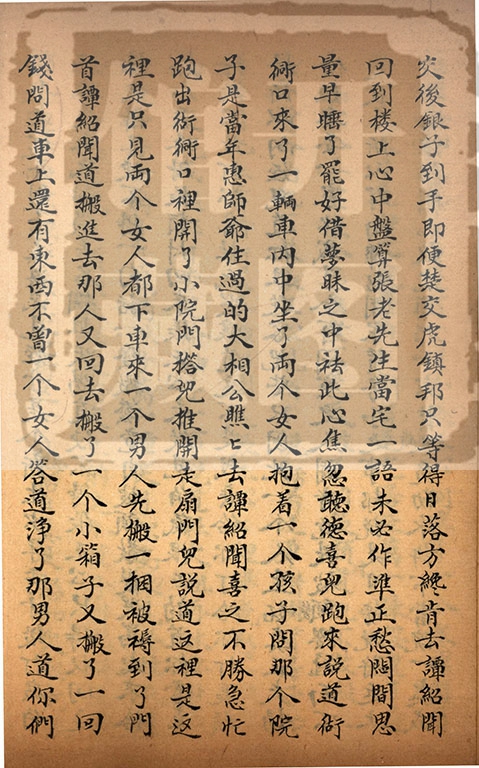 交後銀子到手即便楚交虎鎮邦只等得日落方纔肯去譚紹聞
回到楼上心中盤算張老先生當宅一語未必作準正愁悶間思
量早睡了罷好借夢昧之中祛此心焦忽聽德喜兒跑來說道衚
衕口來了一輛車内中坐了両个女人抱着一个孩子問那个院
子是當年惠師爺住過的大相公瞧〻去譚紹聞喜之不勝急忙
跑出衚衕口裡開了小院門搭兒推開走扇門兒說道这裡是这
裡是只見両个女人都下車來一个男人先搬一捆被褥到了門
首譚紹聞道搬進去那人又回去搬了一个小箱子又搬了一回
錢問道車上還有東西不曾一个女人答道淨了那男人道你們